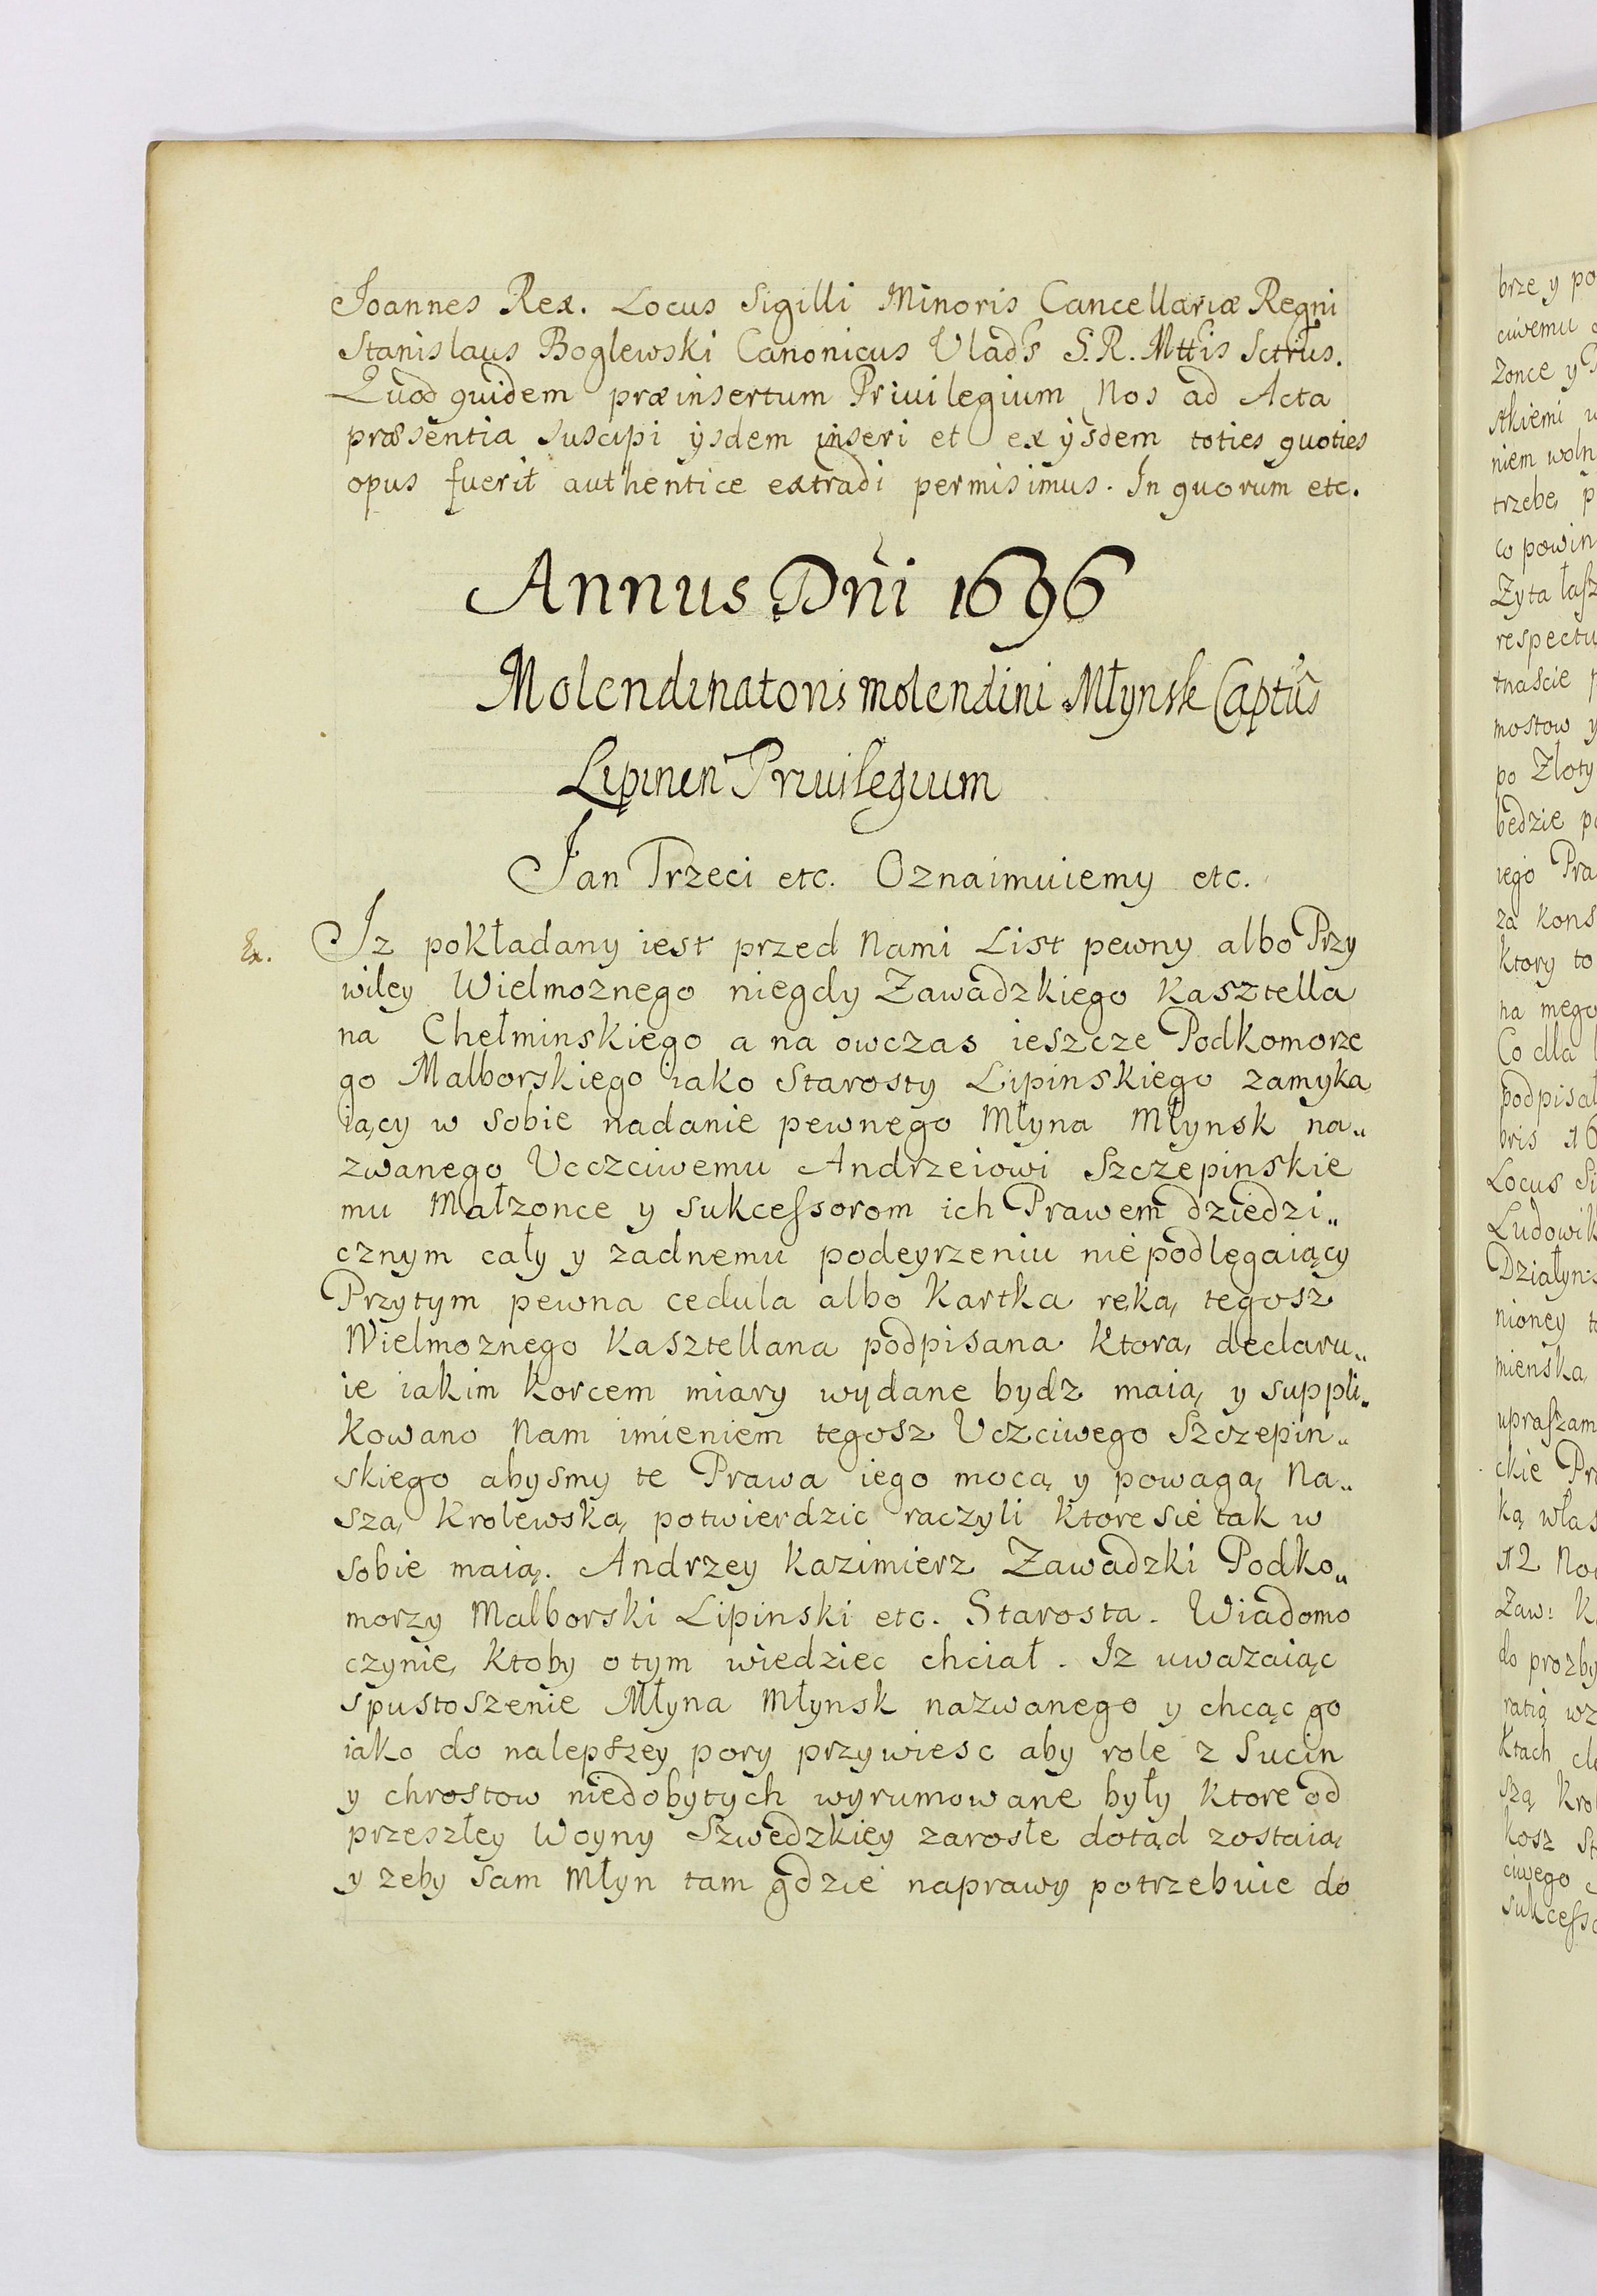 Joannes Rex. Locus Sigilli Minoris Cancellariæ Regni
Stanislaus Boglewski Canonicus Vlads S. R. Mttis Sctrius.
Quod quidem præinsertum Priuilegium Nos ad Acta
præsentia suscipi ijsdem inseri et ex ijsdem toties quoties
opus fuerit authentice extradi permisimus. In quorum etc.
Annus Dñi 1696
Molendinatoris molendini Młynsk Captûs
Lipinen Priuilegium
Jan Trzeci etc. Oznaimuiemy etc.
Ex. Jz pokładany iest przed Nami List pewny albo Przy
wiley Wielmoznego niegdy Zawadzkiego Kasztella
na Chełminskiego a na owczas ieszcze Podkomorze
go Malborskiego iako Starosty Lipinskiego zamyka
iący w sobie nadanie pewnego Młyna Młynsk na„
zwanego Ucczciwemu Andrzeiowi Szczepinskie
mu Małzonce y sukcessorom ich Prawem dziedzi„
cznym cały y zadnemu podeyrzeniu niepodlęgaiący
Przytym pewna cedula albo Kartka ręką tegosz
Wielmoznego Kasztellana podpisana Ktorą declaru„
ie iakim korcem miary wydane bydz maią y suppli„
kowano Nam imieniem tegosz Uczciwego Szczepin„
skiego abysmy te Prawa iego mocą y powagą Na„
szą Krolewską potwierdzic raczyli Ktore sie tak w
sobie maią. Andrzey Kazimierz Zawadzki Podko„
morzy Malborski Lipinski etc. Starosta. Wiadomo
czynię Ktoby o tym wiedziec chciał. Iz uwazaiąc
spustoszenie Młyna Młynsk nazwanego y chcąc go
iako do nalepszey pory przywiesc aby role z Sucin
y chrostow niedobytych wyrumowane były Ktore od
przeszłey Woyny Szwedzkiey zarosłe dotąd zostaią
y zeby sam Młyn tam gdzie naprawy potrzebuie do
brze y po
zonce y
niem woln
co powin
respectu
tnascie
mostow y
po Złoty
będzie
iego Pra
za kons
Ktory to
Co dla
podpisał
Locus Si
Ludowik
Działyns
nioney
minska
upraszam
ckie Pr
ką włas
12 No
Zaw: K
do prozby
ratią
szą Kro
kosz st
ciwego
sukcesso